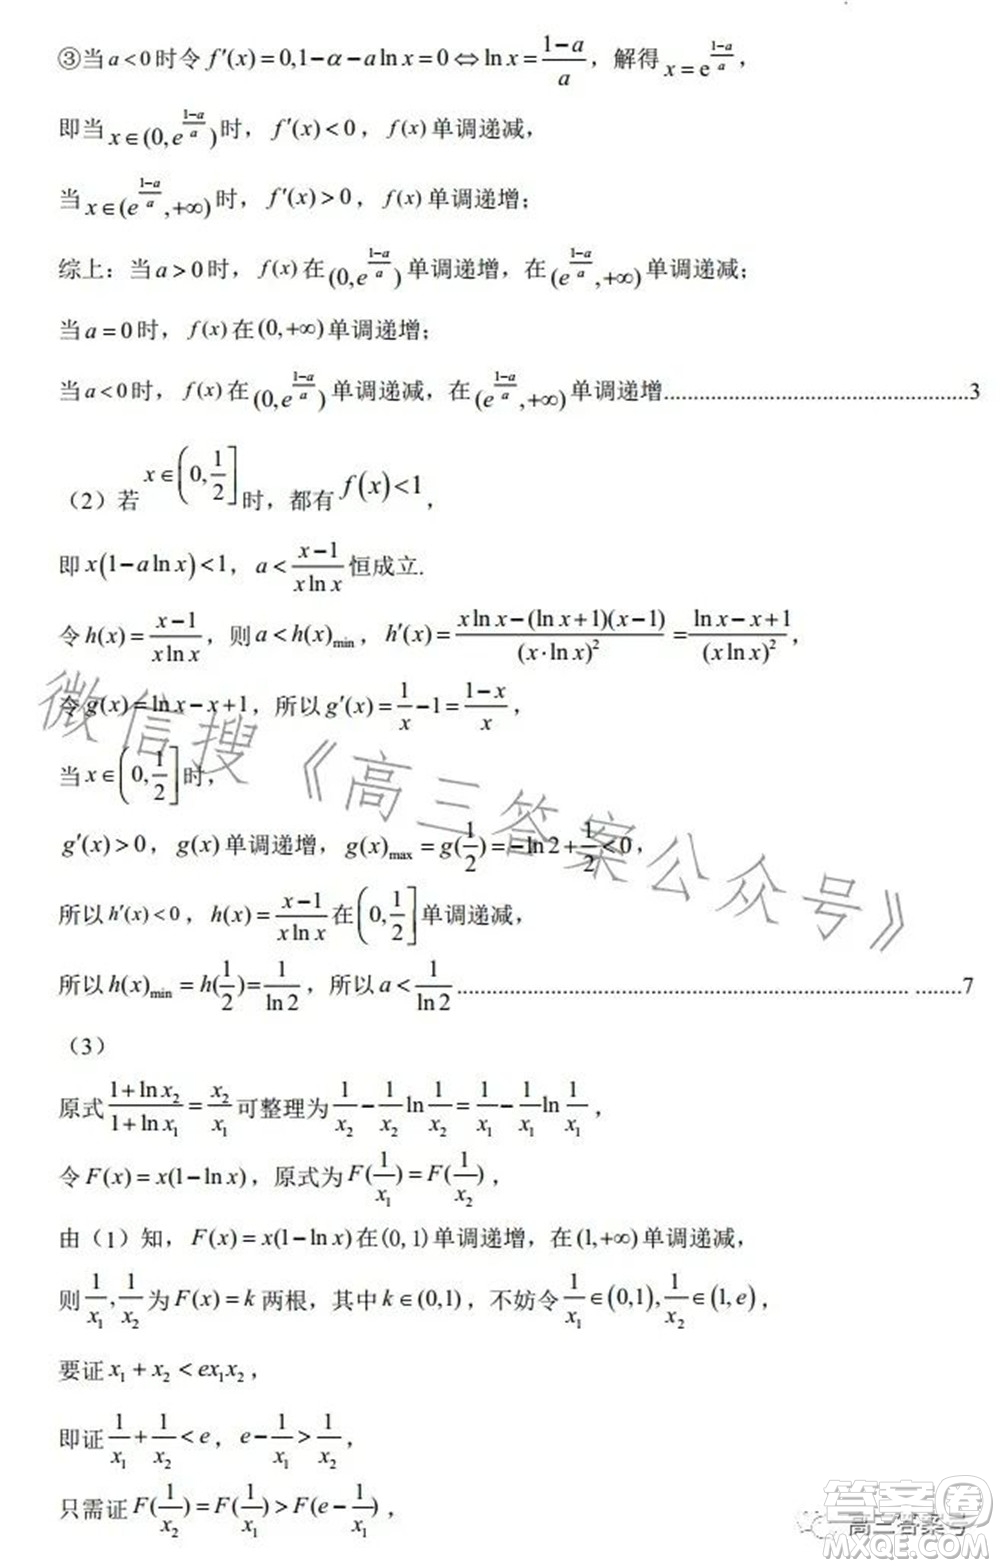 ③当 a<0 时令 f′(x)=0,1−α−a ln x=0⇔ln x=(1−a)/a，解得 x=e^((1−a)/a)，
即当 x∈(0,e^((1−a)/a))时，f′(x)<0，f(x) 单调递减，
当 x∈(e^((1−a)/a),+∞)时，f′(x)>0，f(x) 单调递增；
综上：当 a>0 时，f(x) 在(0,e^((1−a)/a))单调递增，在(e^((1−a)/a),+∞)单调递减；
当 a=0 时，f(x) 在(0,+∞)单调递增；
当 a<0 时，f(x) 在(0,e^((1−a)/a))单调递减，在(e^((1−a)/a),+∞)单调递增..................................................3
（2）若 x∈(0,1/2]时，都有 f(x)<1，
即 x(1−a ln x)<1，a<(x−1)/(x ln x) 恒成立.
令 h(x)=(x−1)/(x ln x)，则 a<h(x)min，h′(x)=(x ln x−(ln x+1)(x−1))/(x·ln x)²=(ln x−x+1)/(x ln x)²，
令 g(x)=ln x−x+1，所以 g′(x)=1/x−1=(1−x)/x，
当 x∈(0,1/2]时，
g′(x)>0，g(x) 单调递增，g(x)max=g(1/2)=−ln2+1/2<0，
所以 h′(x)<0，h(x)=(x−1)/(x ln x) 在(0,1/2]单调递减，
所以 h(x)min=h(1/2)=1/ln2，所以 a<1/ln2..................................................................................7
（3）
原式 (1+ln x₂)/(1+ln x₁)=x₂/x₁ 可整理为 1/x₂−1/x₂ ln 1/x₂=1/x₁−1/x₁ ln 1/x₁，
令 F(x)=x(1−ln x)，原式为 F(1/x₁)=F(1/x₂)，
由（1）知，F(x)=x(1−ln x)在(0,1)单调递增，在(1,+∞)单调递减，
则 1/x₁,1/x₂ 为 F(x)=k 两根，其中 k∈(0,1)，不妨令 1/x₁∈(0,1),1/x₂∈(1,e)，
要证 x₁+x₂<ex₁x₂，
即证 1/x₁+1/x₂<e，e−1/x₁>1/x₂，
只需证 F(1/x₂)=F(1/x₁)>F(e−1/x₁)，
微信搜《高三答案公众号》
高三答案号
答案圈
MXQE.COM